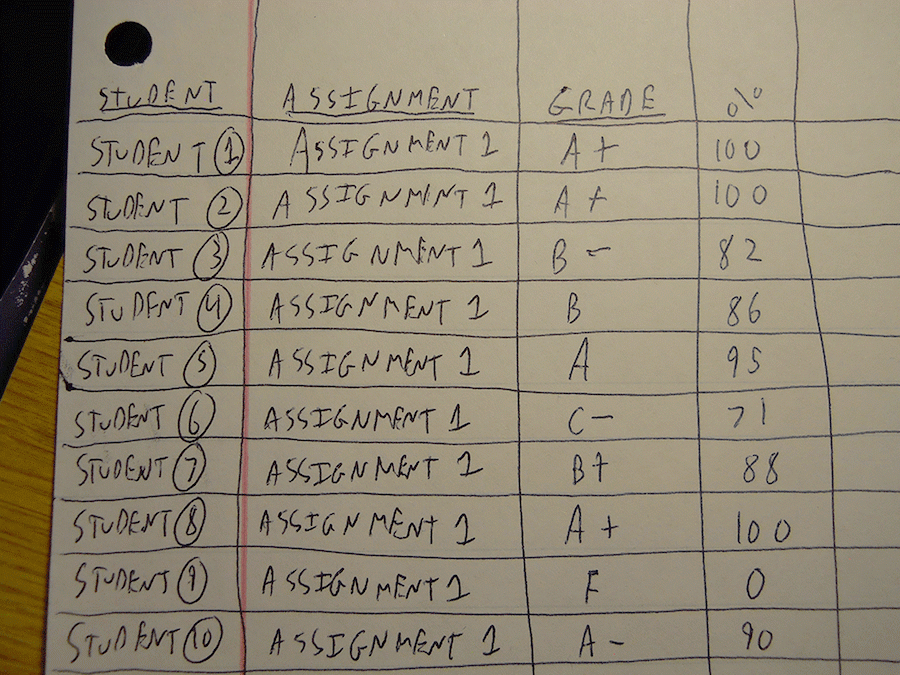 STUDENT ASSIGNMENT GRADE %
STUDENT 1 ASSIGNMENT 1 A+ 100
STUDENT 2 ASSIGNMENT 1 A+ 100
STUDENT 3 ASSIGNMENT 1 B- 82
STUDENT 4 ASSIGNMENT 1 B 86
STUDENT 5 ASSIGNMENT 1 A 95
STUDENT 6 ASSIGNMENT 1 C- 71
STUDENT 7 ASSIGNMENT 1 B+ 88
STUDENT 8 ASSIGNMENT 1 A+ 100
STUDENT 9 ASSIGNMENT 1 F 0
STUDENT 10 ASSIGNMENT 1 A- 90